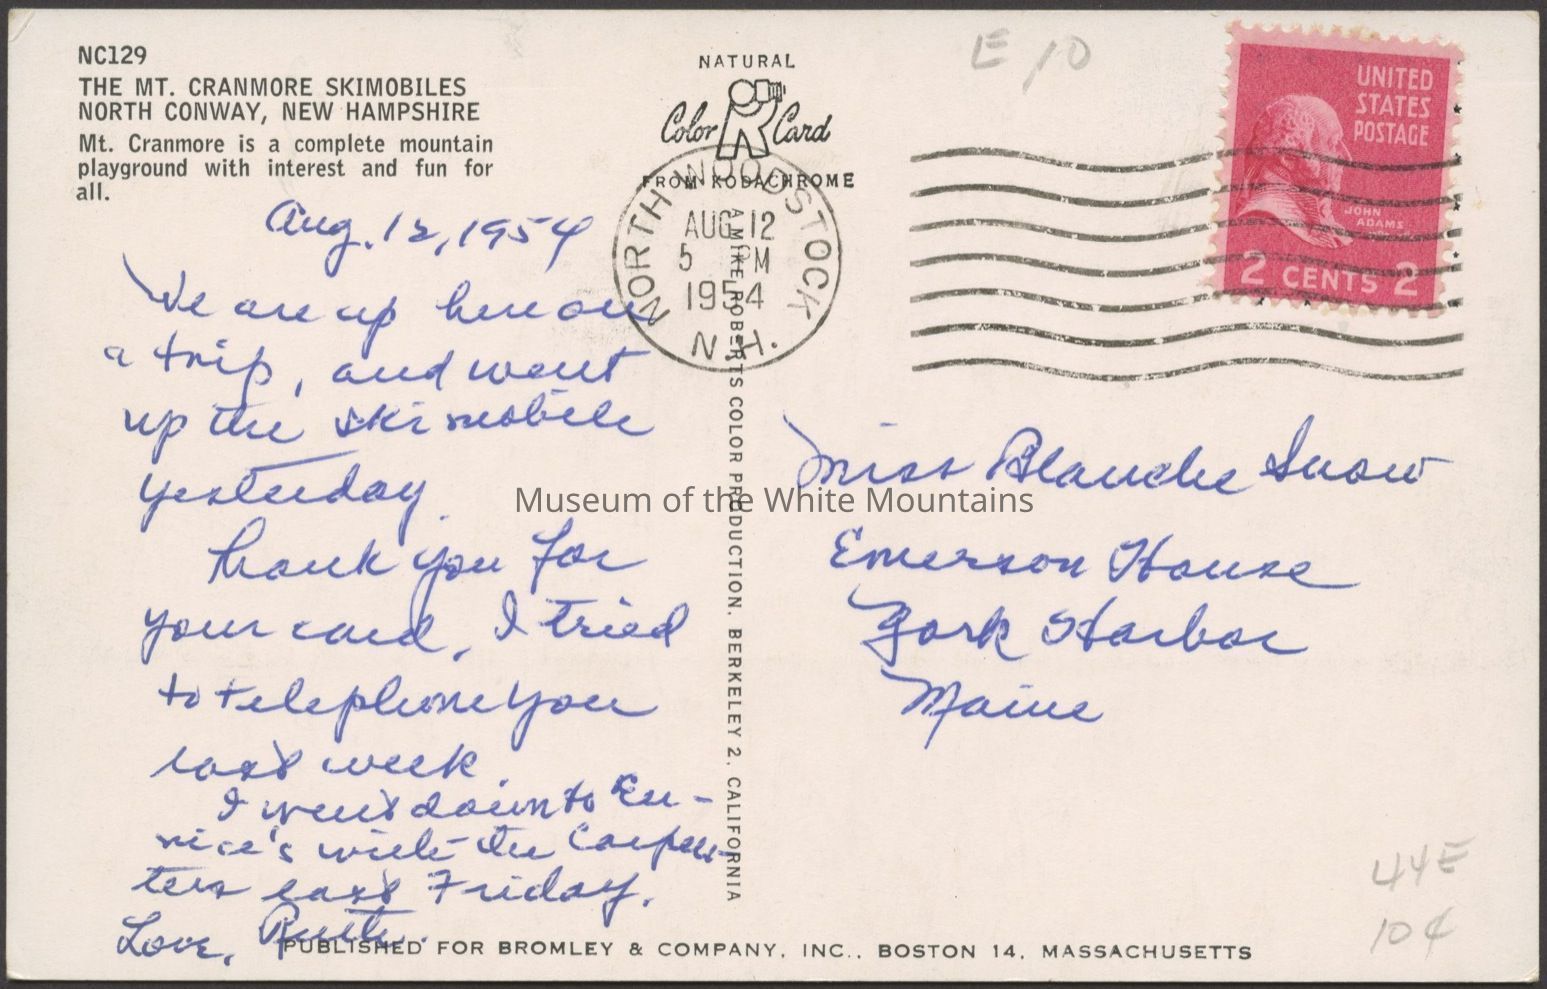 NC129
THE MT. CRANMORE SKIMOBILES
NORTH CONWAY, NEW HAMPSHIRE
Mt. Cranmore is a complete mountain
playground with interest and fun for
all.
Aug. 12, 1954
We are up here on
a trip, and went
up the skimobile
yesterday.
Thank you for
your card, I tried
to telephone you
last week.
I went down to Eu-
nice's with the Carpen-
ters last Friday.
Love, Ruth.
NATURAL
Color Card
FROM KODACHROME
A MIKE ROBERTS COLOR PRODUCTION, BERKELEY 2, CALIFORNIA
NORTH WOODSTOCK
AUG 12
5 PM
1954
N.H.
E 10
UNITED
STATES
POSTAGE
JOHN
ADAMS
2 CENTS 2
Miss Blanche Snow
Emerson House
York Harbor
Maine
Museum of the White Mountains
44E
10¢
PUBLISHED FOR BROMLEY & COMPANY, INC., BOSTON 14, MASSACHUSETTS